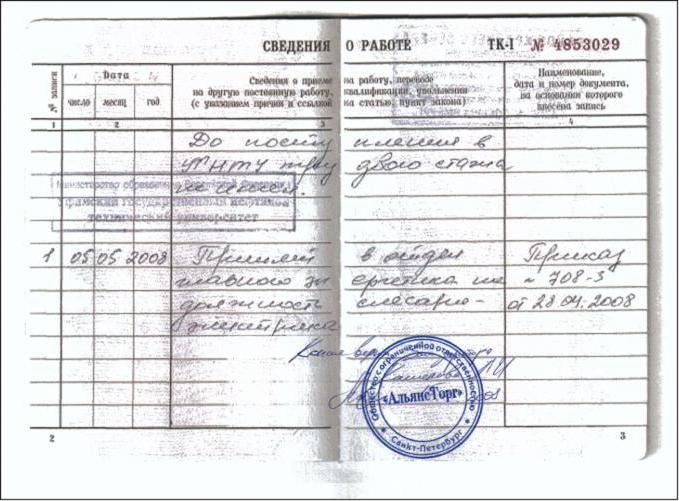 СВЕДЕНИЯ О РАБОТЕ ТК-I № 4853029
№ записи
Дата
число месяц год
Сведения о приеме на работу, переводе
на другую постоянную работу, квалификации, увольнении
(с указанием причин и ссылкой на статью, пункт закона)
Наименование,
дата и номер документа,
на основании которого
внесена запись
1 2 3 4
До поступления в
УГНТУ трудового стажа
не имеет.
Министерство образования Российской Федерации
Уфимский государственный нефтяной
технический университет
1 05 05 2008 Принят в отдел Приказ
главного энергетика на № 708-3
должность слесарю- от 28.04.2008
электрика
Копия верна
Общество с ограниченной ответственностью
«АльянсТорг»
Санкт-Петербург
2 3